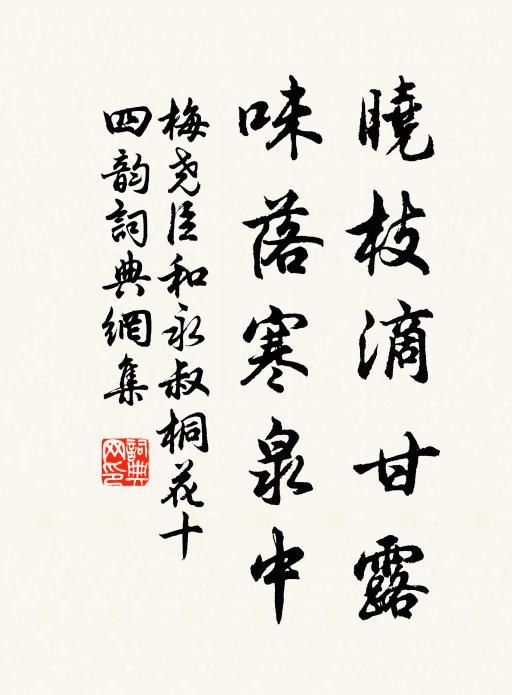 曉枝滴甘露
味落寒泉中
梅堯臣和永叔桐花十
四韵詞典網集
詞典
网印